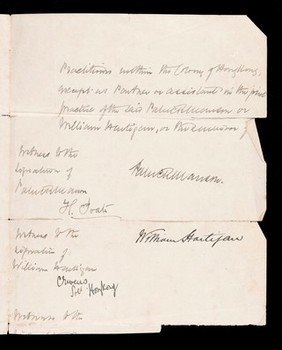 Practitioner within the Colony of Hongkong,
except as Partner or assistant in the joint
practice of the said Patrick Manson or
William Hartigan, or the survivor of
Witness to the
signature of
Patrick Manson
Patrick Manson
Witness to the
signature of
William Hartigan
William Hartigan
Witness to the